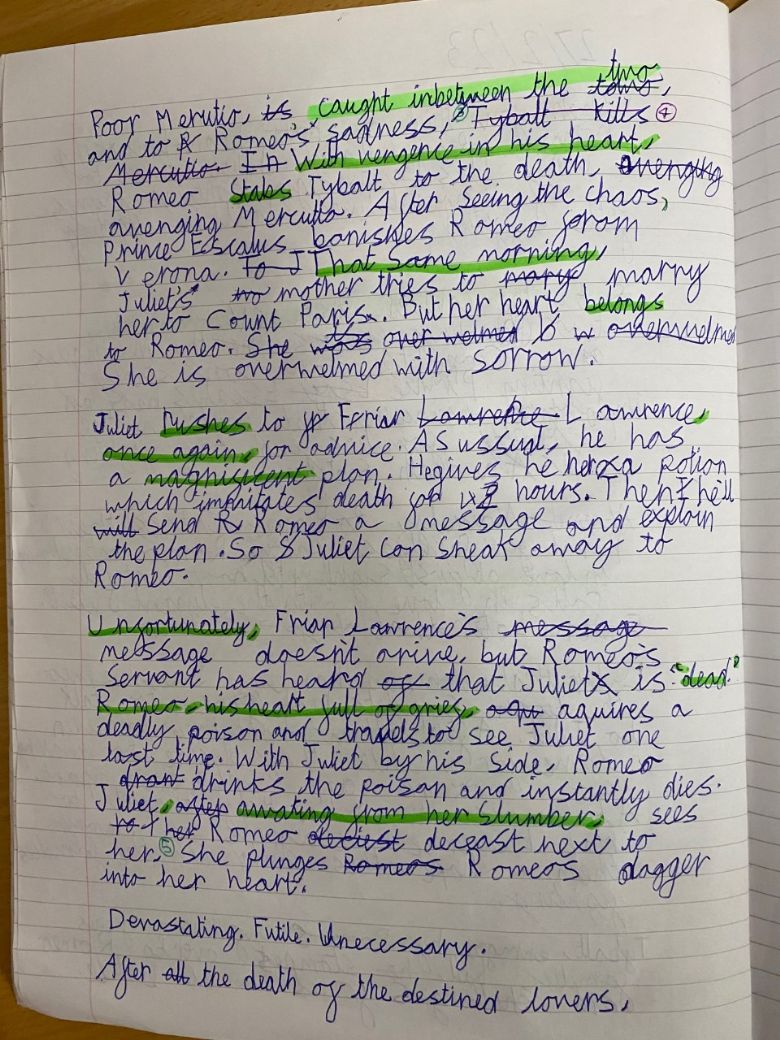 two
Poor Merutio, is caught inbetween the two,
and to R Romeo's sadness, ③ Tybalt kills ④
Mercutio. In With vengence in his heart,
Romeo stabs Tybalt to the death, avenging
avenging Mercutio. After seeing the chaos,
Prince Escalus banishes Romeo from
Verona. To J That same morning,
Juliet's mother tries to mary marry
her to Count Paris. But her heart belongs
to Romeo. She was over welmed b w overwelmed
She is overwelmed with sorrow.
Juliet rushes to Friar Lawrence Lawrence,
once again, for advice. As ussual, he has
a magnificent plan. He gives he her a potion
which imphitates death for hours. Then he'll
will send R Romeo a message and explain
the plan. So S Juliet can sneak away to
Romeo.
Unfortunately, Friar Lawrence's message
message doesn't arive, but Romeo's
servant has heard of that Juliet is "dead."
Romeo, his heart full of grief, aqu aquires a
deadly poison and travels to see Juliet one
last time. With Juliet by his side, Romeo
drant drinks the poison and instantly dies.
Juliet, after awating from her slumber, sees
to her Romeo deciest deceast next to
her. ⑤ She plunges Romeos Romeo's dagger
into her heart.
Devastating. Futile. Unecessary.
After all the death of the destined lovers,